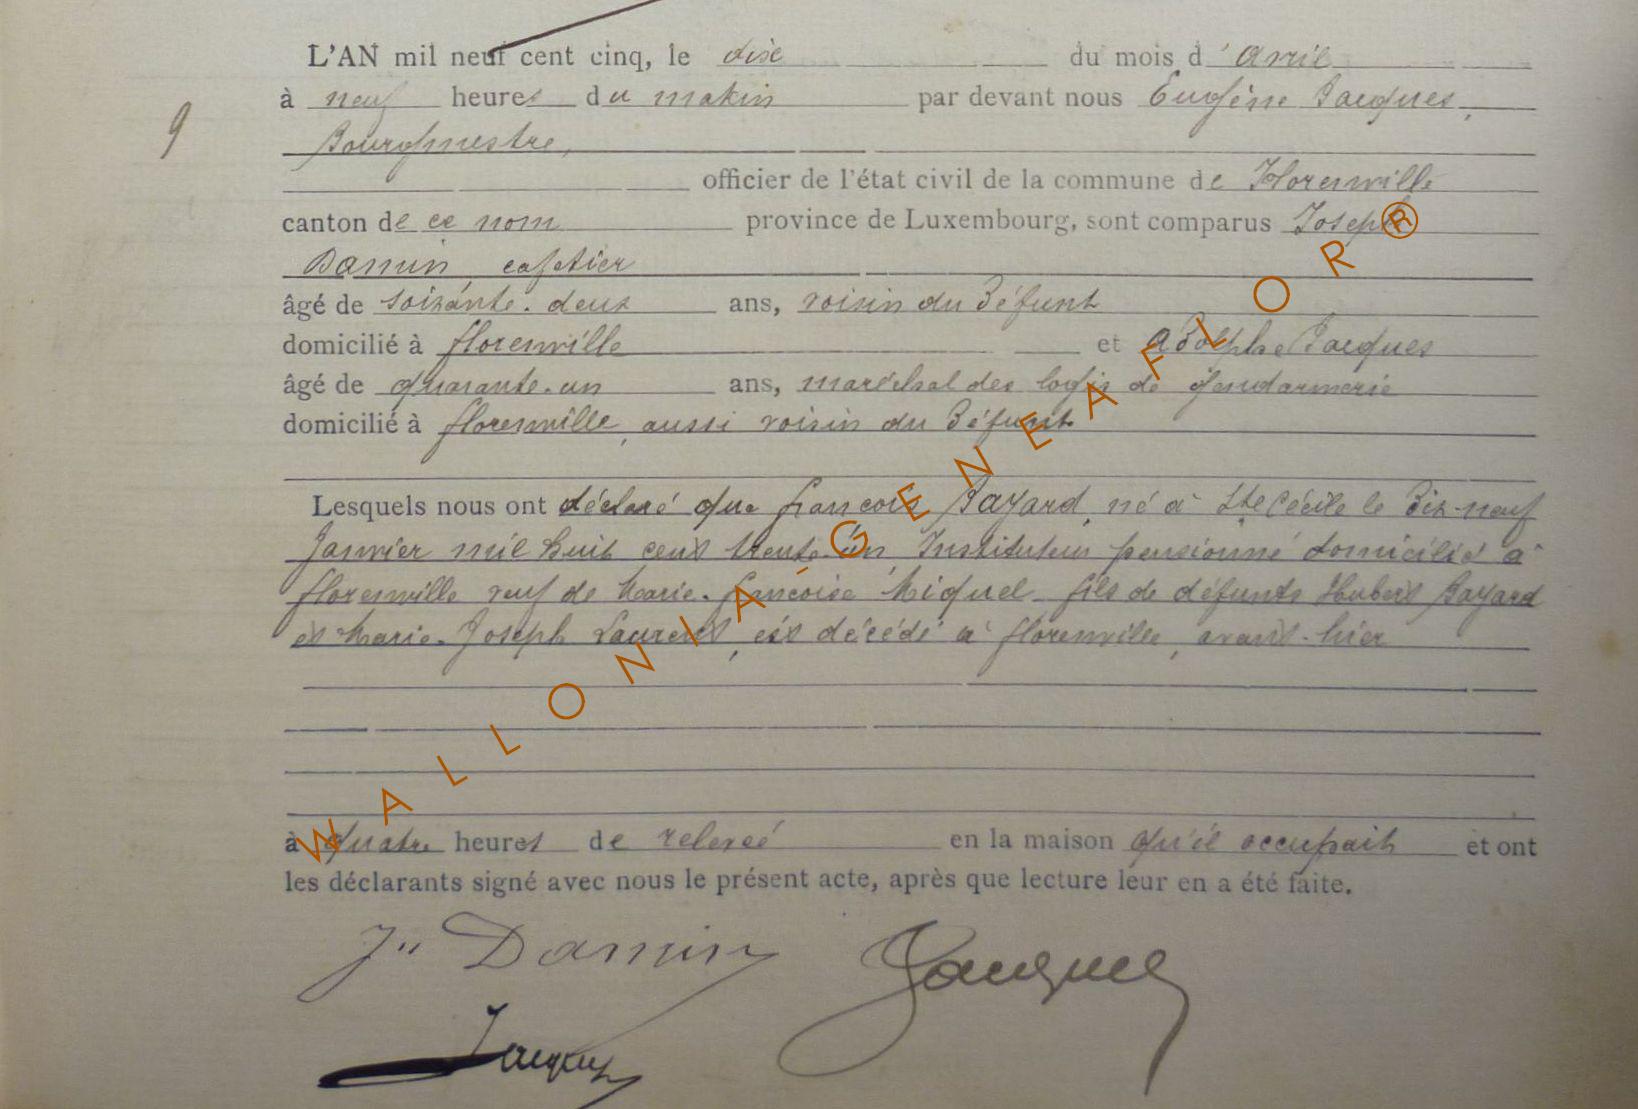 L'AN mil neuf cent cinq, le dix du mois d'avril
à neuf heures du matin par devant nous Eugène Jacques,
9
Bourgmestre,
officier de l'état civil de la commune de Florenville
canton de ce nom province de Luxembourg, sont comparus Joseph
Damin cafetier
âgé de soixante-deux ans, voisin du défunt
domicilié à florenville et Adolphe Jacques
âgé de quarante-un ans, maréchal des logis de gendarmerie
domicilié à florenville, aussi voisin du défunt
Lesquels nous ont déclaré que françois Bayard, né à Ste Cécile le dix-neuf
Janvier mil huit cent trente-un, Instituteur pensionné domicilié à
florenville veuf de Marie-françoise Miquel fils de défunts Hubert Bayard
et Marie-Joseph Laurent, est décédé à florenville, avant-hier
à quatre heures de relevée en la maison qu'il occupait et ont
les déclarants signé avec nous le présent acte, après que lecture leur en a été faite.
Jh Damin Jacques
Jacques
WALLONIA-GENEAFLOR®